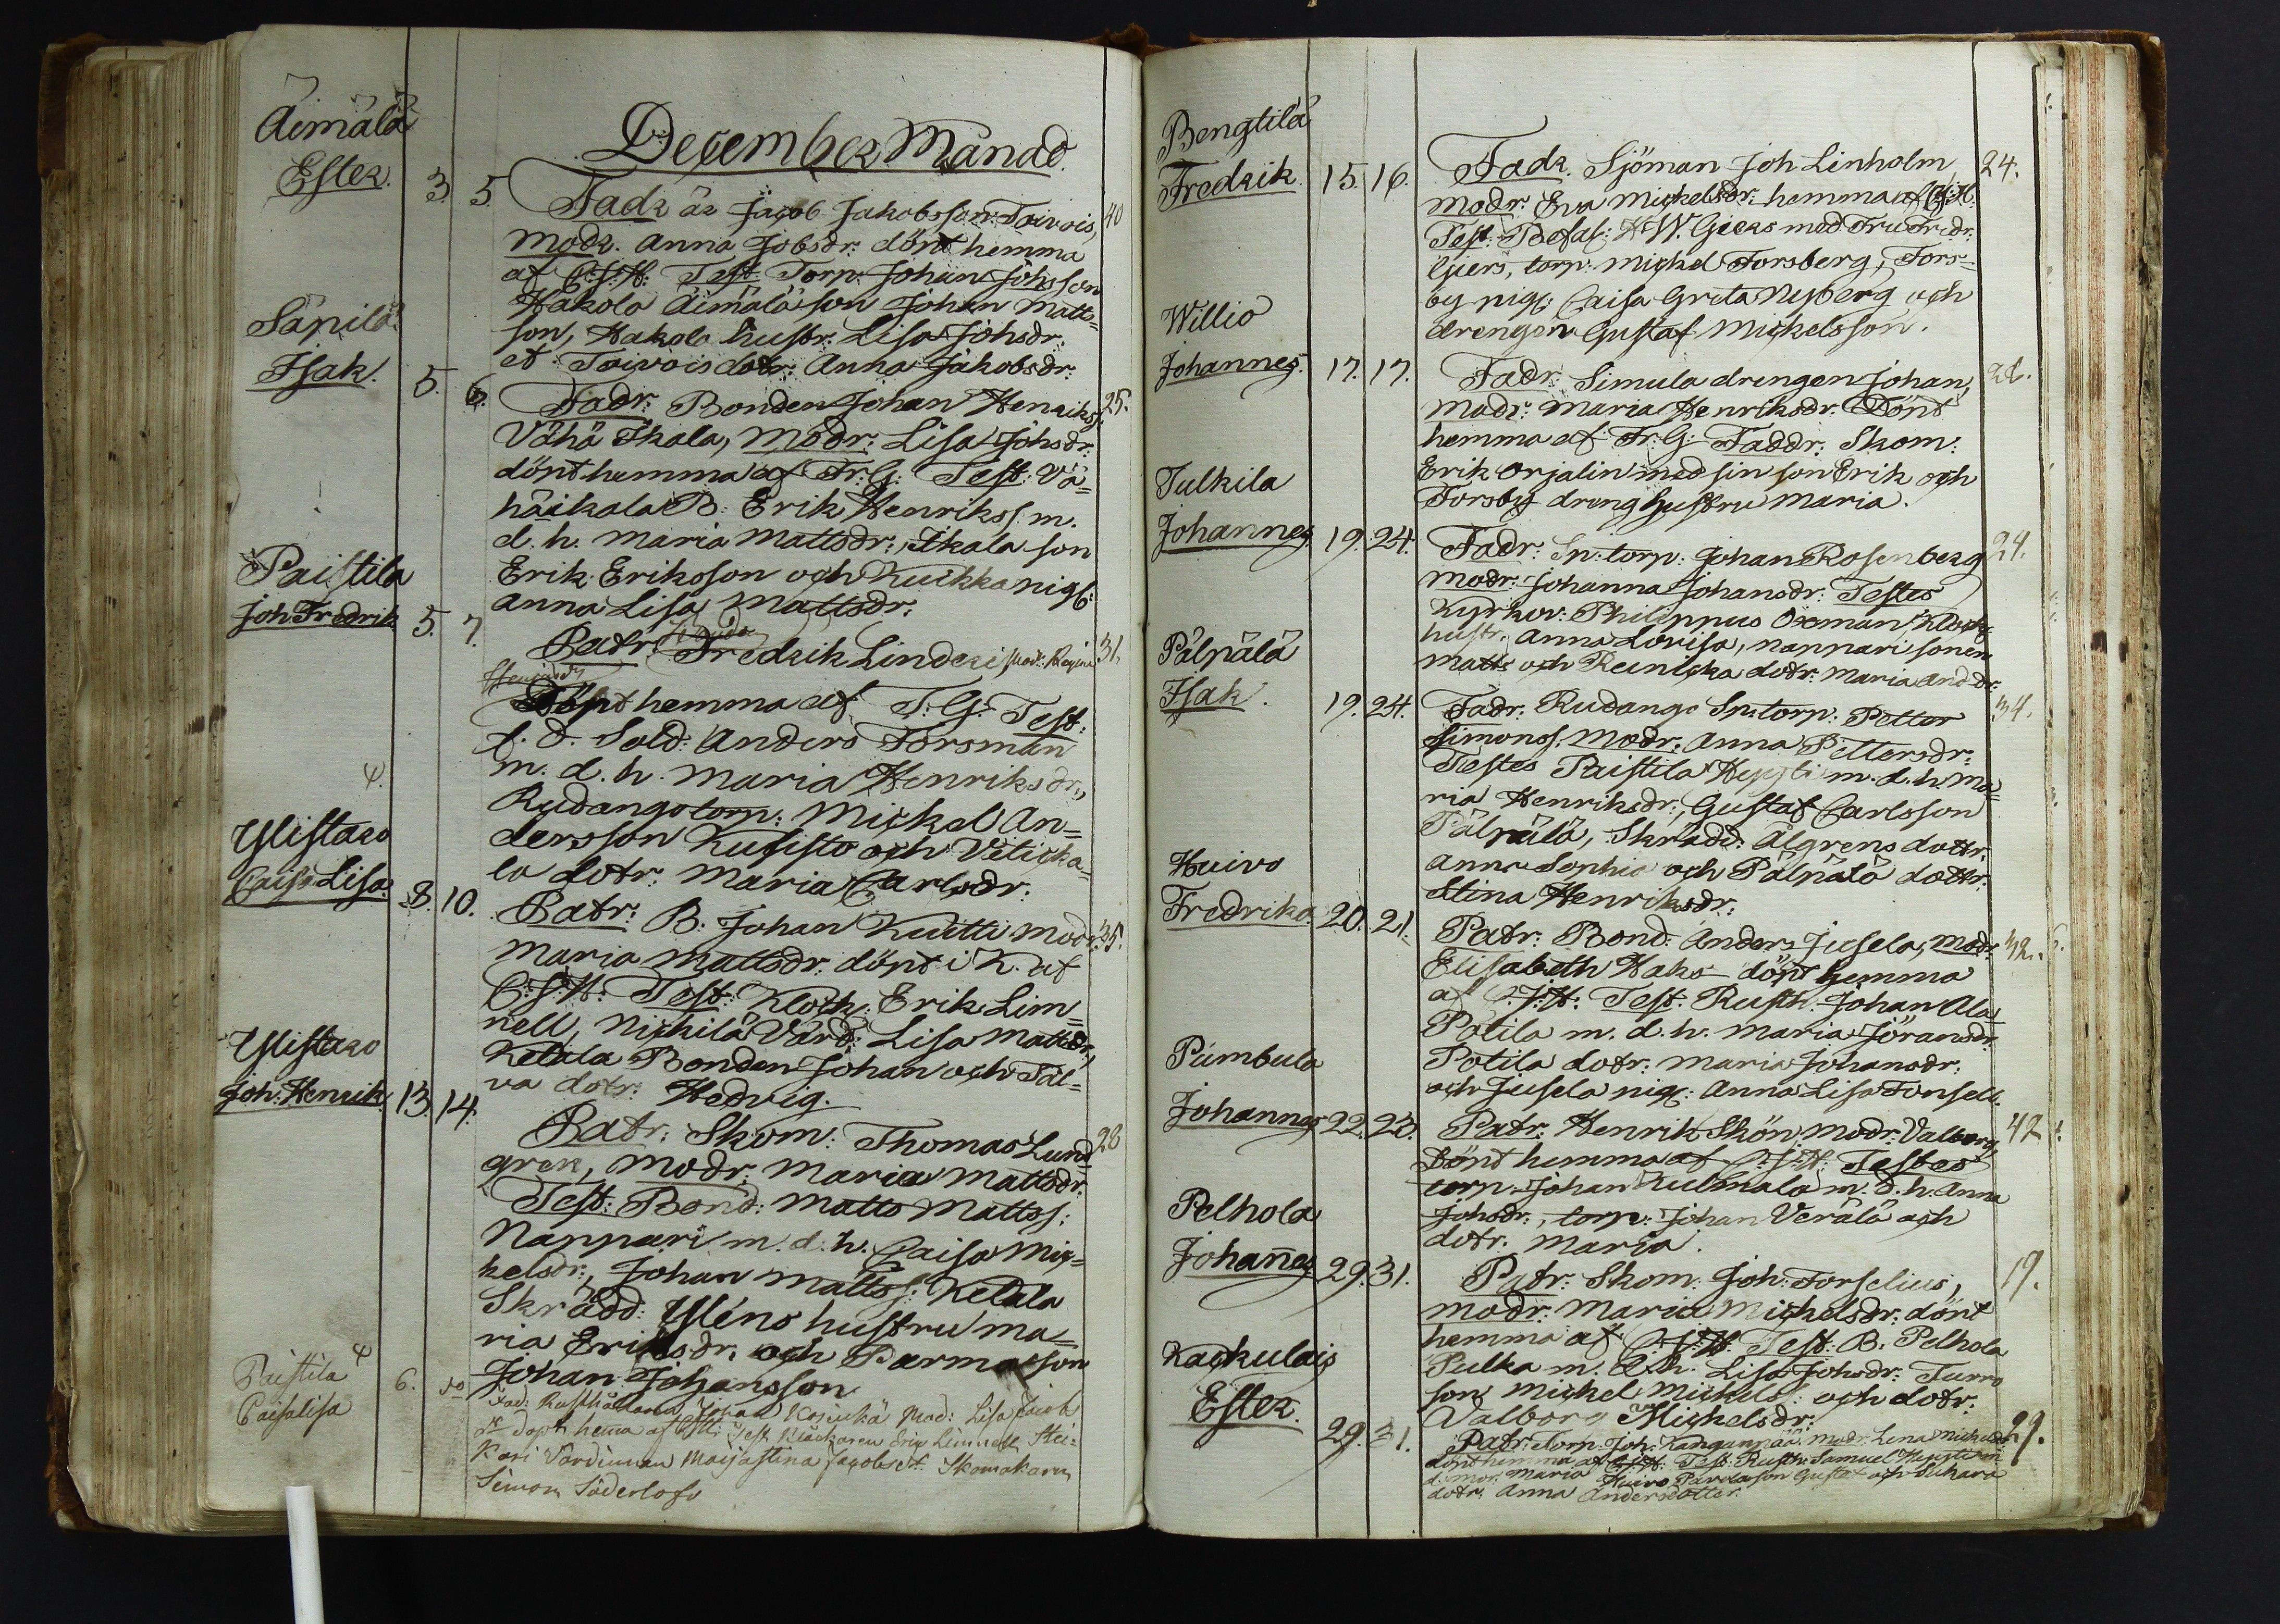 December Månad.
Äimälä
Ester. 3. 5. Fadr är Jacob Jakobsson Toivois, 40
Modr. Anna Jobsdr: dönt hemma
af C.J.H: Test. Torp: Johan Johsson
Hakola Äimälä son Johan Matts=
son, Hakola hustr. Lisa Johsdr.
et Toivois dotr: Anna Jakobsdr:
Säpilä
Isak. 5. 6. Fadr: Bonden Johan Henrikss: 25.
Vähä Ikala, Modr: Lisa Johsdr:
dönt hemma af Fr: G: Test: Vä=
häikala B: Erik Henrikss: m.
d. h. Maria Mattsdr:, Ikala son
Erik Eriksson och Kuikka pig:
Anna Lisa Mattsdr:
Paistila
Joh Fredrik 5. 7. Patr: Fredrik Linderi, Modr: Regina 31.
Henriksdr
Döpt hemma af F. G: Test:
f. d. Sold: Anders Forsman
m. d. h. Maria Henriksdr.,
Rudango torp: Mickel An=
dersson Kufisto och Viticka=
la dotr: Maria Carlsdr:
Ylistaro
Caisa Lisa. 8. 10. Patr: B: Johan Kuitti Modr: 35.
Maria Mattsdr: dönt i K. af
C:J:H: Test: Klock: Erik Lim=
nell, Nickilä Värd: Lisa Mattsdr,
Ketala Bonden Johan och Tal=
va dotr: Hedvig.
Ylistaro
Joh: Henrik 13. 14. Patr: Skom: Thomas Lund= 28
gren, Modr: Maria Mattsdr:
Test: Bond: Matts Mattss:
Nappari m. d. h. Caisa Mic=
kelsdr:, Johan Mattss: Ketala
Skrädd: Yléns hustru Ma=
ria Eriksdr. och Parma son
Johan Johansson
Paistila
Caisalisa 6. Fad: Rusthållaren Johan Mod: Lisa Jacob
dr döpt hema af Test: Klåckaren Eric Limnell
Kari Värdinnan Maijastina Jacobsdr: Skomakaren
Simon Söderlofs
Bengtilä
Fredrik. 15. 16. Fadr. Sjöman Joh Linholm 24.
Modr: Eva Mickelsdr: hemma af C:J:H:
Test: Befal: H W. Giers med Fru Fredr:
Giers, torp: Mickel Forsberg, Fors=
by pig: Caisa Greta Nyberg och
drengen Gustaf Mickelsson.
Willio
Johannes. 17. 17. Fadr: Simula drengen Johan,
Modr: Maria Henriksdr: Dönt
hemma af Fr: G: Faddr: Skom:
Erik Orjalin med sin son Erik och
Forsby dreng hustru Maria.
Tulkila
Johannes 19. 24. Fadr: Sp: torp: Johan Rosenberg 24.
Modr: Johanna Johansdr: Testes
Kyrkov: Philippus Oxman, Klock
hustr: Anna Lovisa, Nappari sonen
Matts och dotr: Maria And dr:
Pälpälä
Isak. 19. 24. Fadr: Rudango Sp: torp: Petter 34.
Simonss: Modr: Anna Pettersdr:
Testes Paistila m. d. h. Ma=
ria Henriksdr:, Gustaf Carlsson
Pälpälä, Skrädd: Ålgrens dottr:
Anna Sophia och Pälpälä dottr:
Stina Henriksdr:
Huivo
Fredrika. 20. 21. Patr: Bond: Anders Jusela, Modr:
Elisabeth Haks döpt hemma
af C:J:H: Test: Rusth: Johan Ala
Potila m. d. h. Maria Jöransdr:
Potila dotr: Maria Johansdr:
och Jusela pig: Anna Lisa Fonsell.
Pumbula
Johannes 22. 23. Patr: Henrik Skön, Modr: Valborg, 42
Dönt hemma af C:J:H: Testes
torp: Johan Kulmala m. d. h. Anna
Johsdr:, torp: Johan Verälä och
dotr: Maria.
Pelhola
Johañes 29. 31. Patr: Skom: Joh: Forselius, 19.
Modr: Maria Mickelsdr: dönt
hemma af C:J:H: Test: B: Pelhola
Pulka m. d. h. Lisa Johsdr: Turro
son Mickel Mickels: och dotr:
Valborg Mickelsdr:
Kackulais
Ester. 29. 31. Patr: Torp: Joh: Kanganpää Modr: Lena Mickelsdr: 29.
dönt hemma af C:J:H: Test: Rusth: Samuel
d: mor Maria Huivo Parola son Gustaf och Suhara
dotr: Anna Andersdotter.